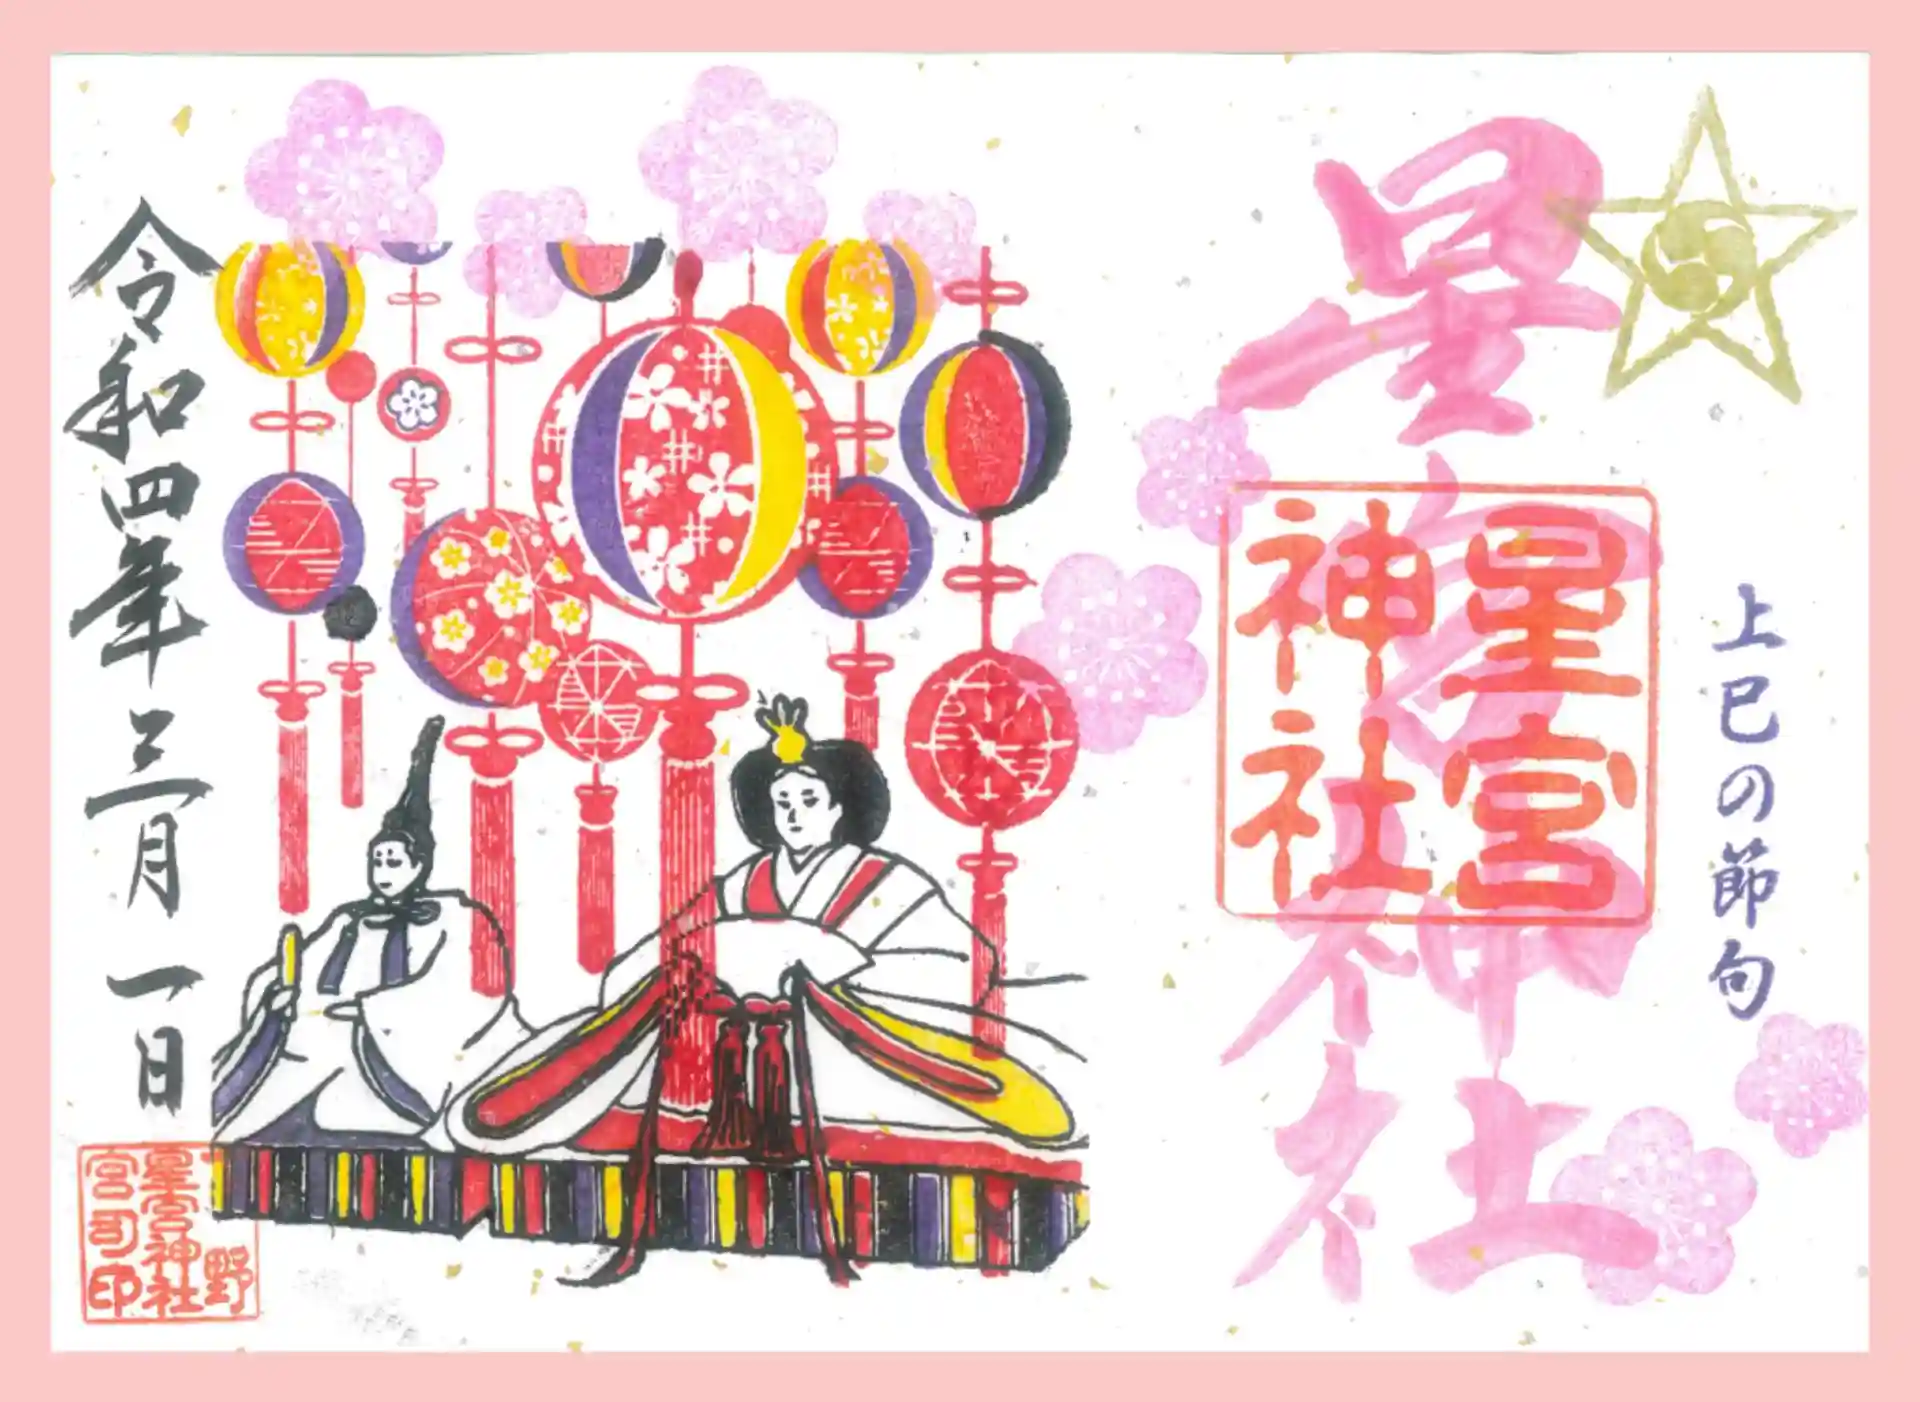 上巳の節句
星宮神社
星宮
神社
令和四年三月一日
星宮神社
宮司印